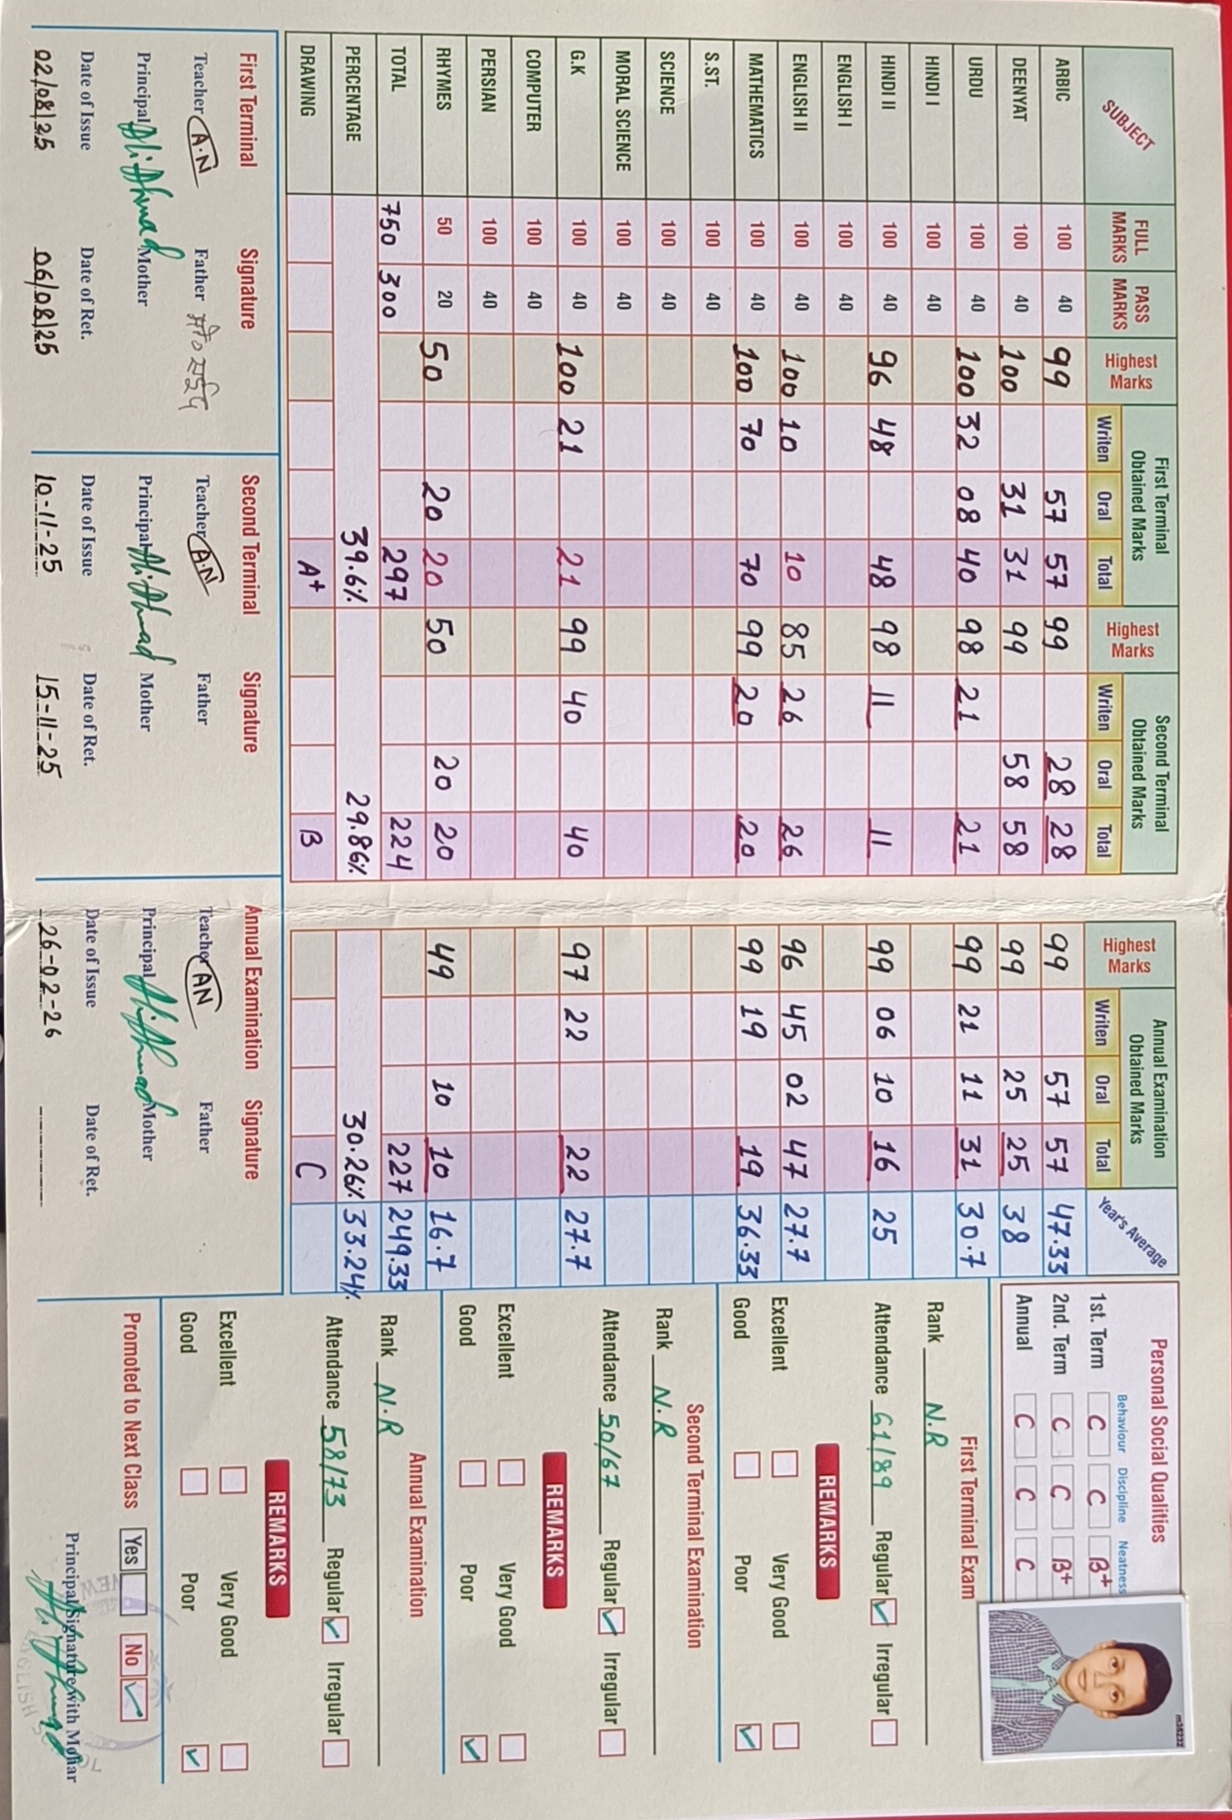 SUBJECT FULL MARKS PASS MARKS Highest Marks First Terminal Obtained Marks Writen Oral Total Highest Marks Second Terminal Obtained Marks Writen Oral Total Highest Marks Annual Examination Obtained Marks Writen Oral Total Year's Average
ARBIC 100 40 99 57 57 99 28 28 99 57 57 47.33
DEENYAT 100 40 100 31 31 99 58 58 99 25 25 38
URDU 100 40 100 32 08 40 98 21 21 99 21 11 31 30.7
HINDI I 100 40
HINDI II 100 40 96 48 48 98 11 11 99 06 10 16 25
ENGLISH I 100 40
ENGLISH II 100 40 100 10 10 85 26 26 96 45 02 47 27.7
MATHEMATICS 100 40 100 70 70 99 20 20 99 19 19 36.33
S.ST. 100 40
SCIENCE 100 40
MORAL SCIENCE 100 40
G.K 100 40 100 21 21 99 40 40 97 22 22 27.7
COMPUTER 100 40
PERSIAN 100 40
RHYMES 50 20 50 20 20 50 20 20 49 10 10 16.7
TOTAL 750 300 297 224 227 249.33
PERCENTAGE 39.6% 29.86% 30.26% 33.24%
DRAWING A+ B C
First Terminal Signature
Teacher A.N Father मो० सईद
Principal Ali Ahmad Mother
Date of Issue Date of Ret.
02/08/25 06/08/25
Second Terminal Signature
Teacher A.N Father
Principal Ali Ahmad Mother
Date of Issue Date of Ret.
10-11-25 15-11-25
Annual Examination Signature
Teacher AN Father
Principal Ali Ahmad Mother
Date of Issue Date of Ret.
26-02-26
Personal Social Qualities
Behaviour Discipline Neatness
1st. Term C C B+
2nd. Term C C B+
Annual C C C
m36232
First Terminal Exam
Rank N.R
Attendance 61/89 Regular Irregular
REMARKS
Excellent Very Good
Good Poor
Second Terminal Examination
Rank N.R
Attendance 50/67 Regular Irregular
REMARKS
Excellent Very Good
Good Poor
Annual Examination
Rank N.R
Attendance 58/73 Regular Irregular
REMARKS
Excellent Very Good
Good Poor
Promoted to Next Class Yes No
Principal Signature with Mohar
Ali Ahmad